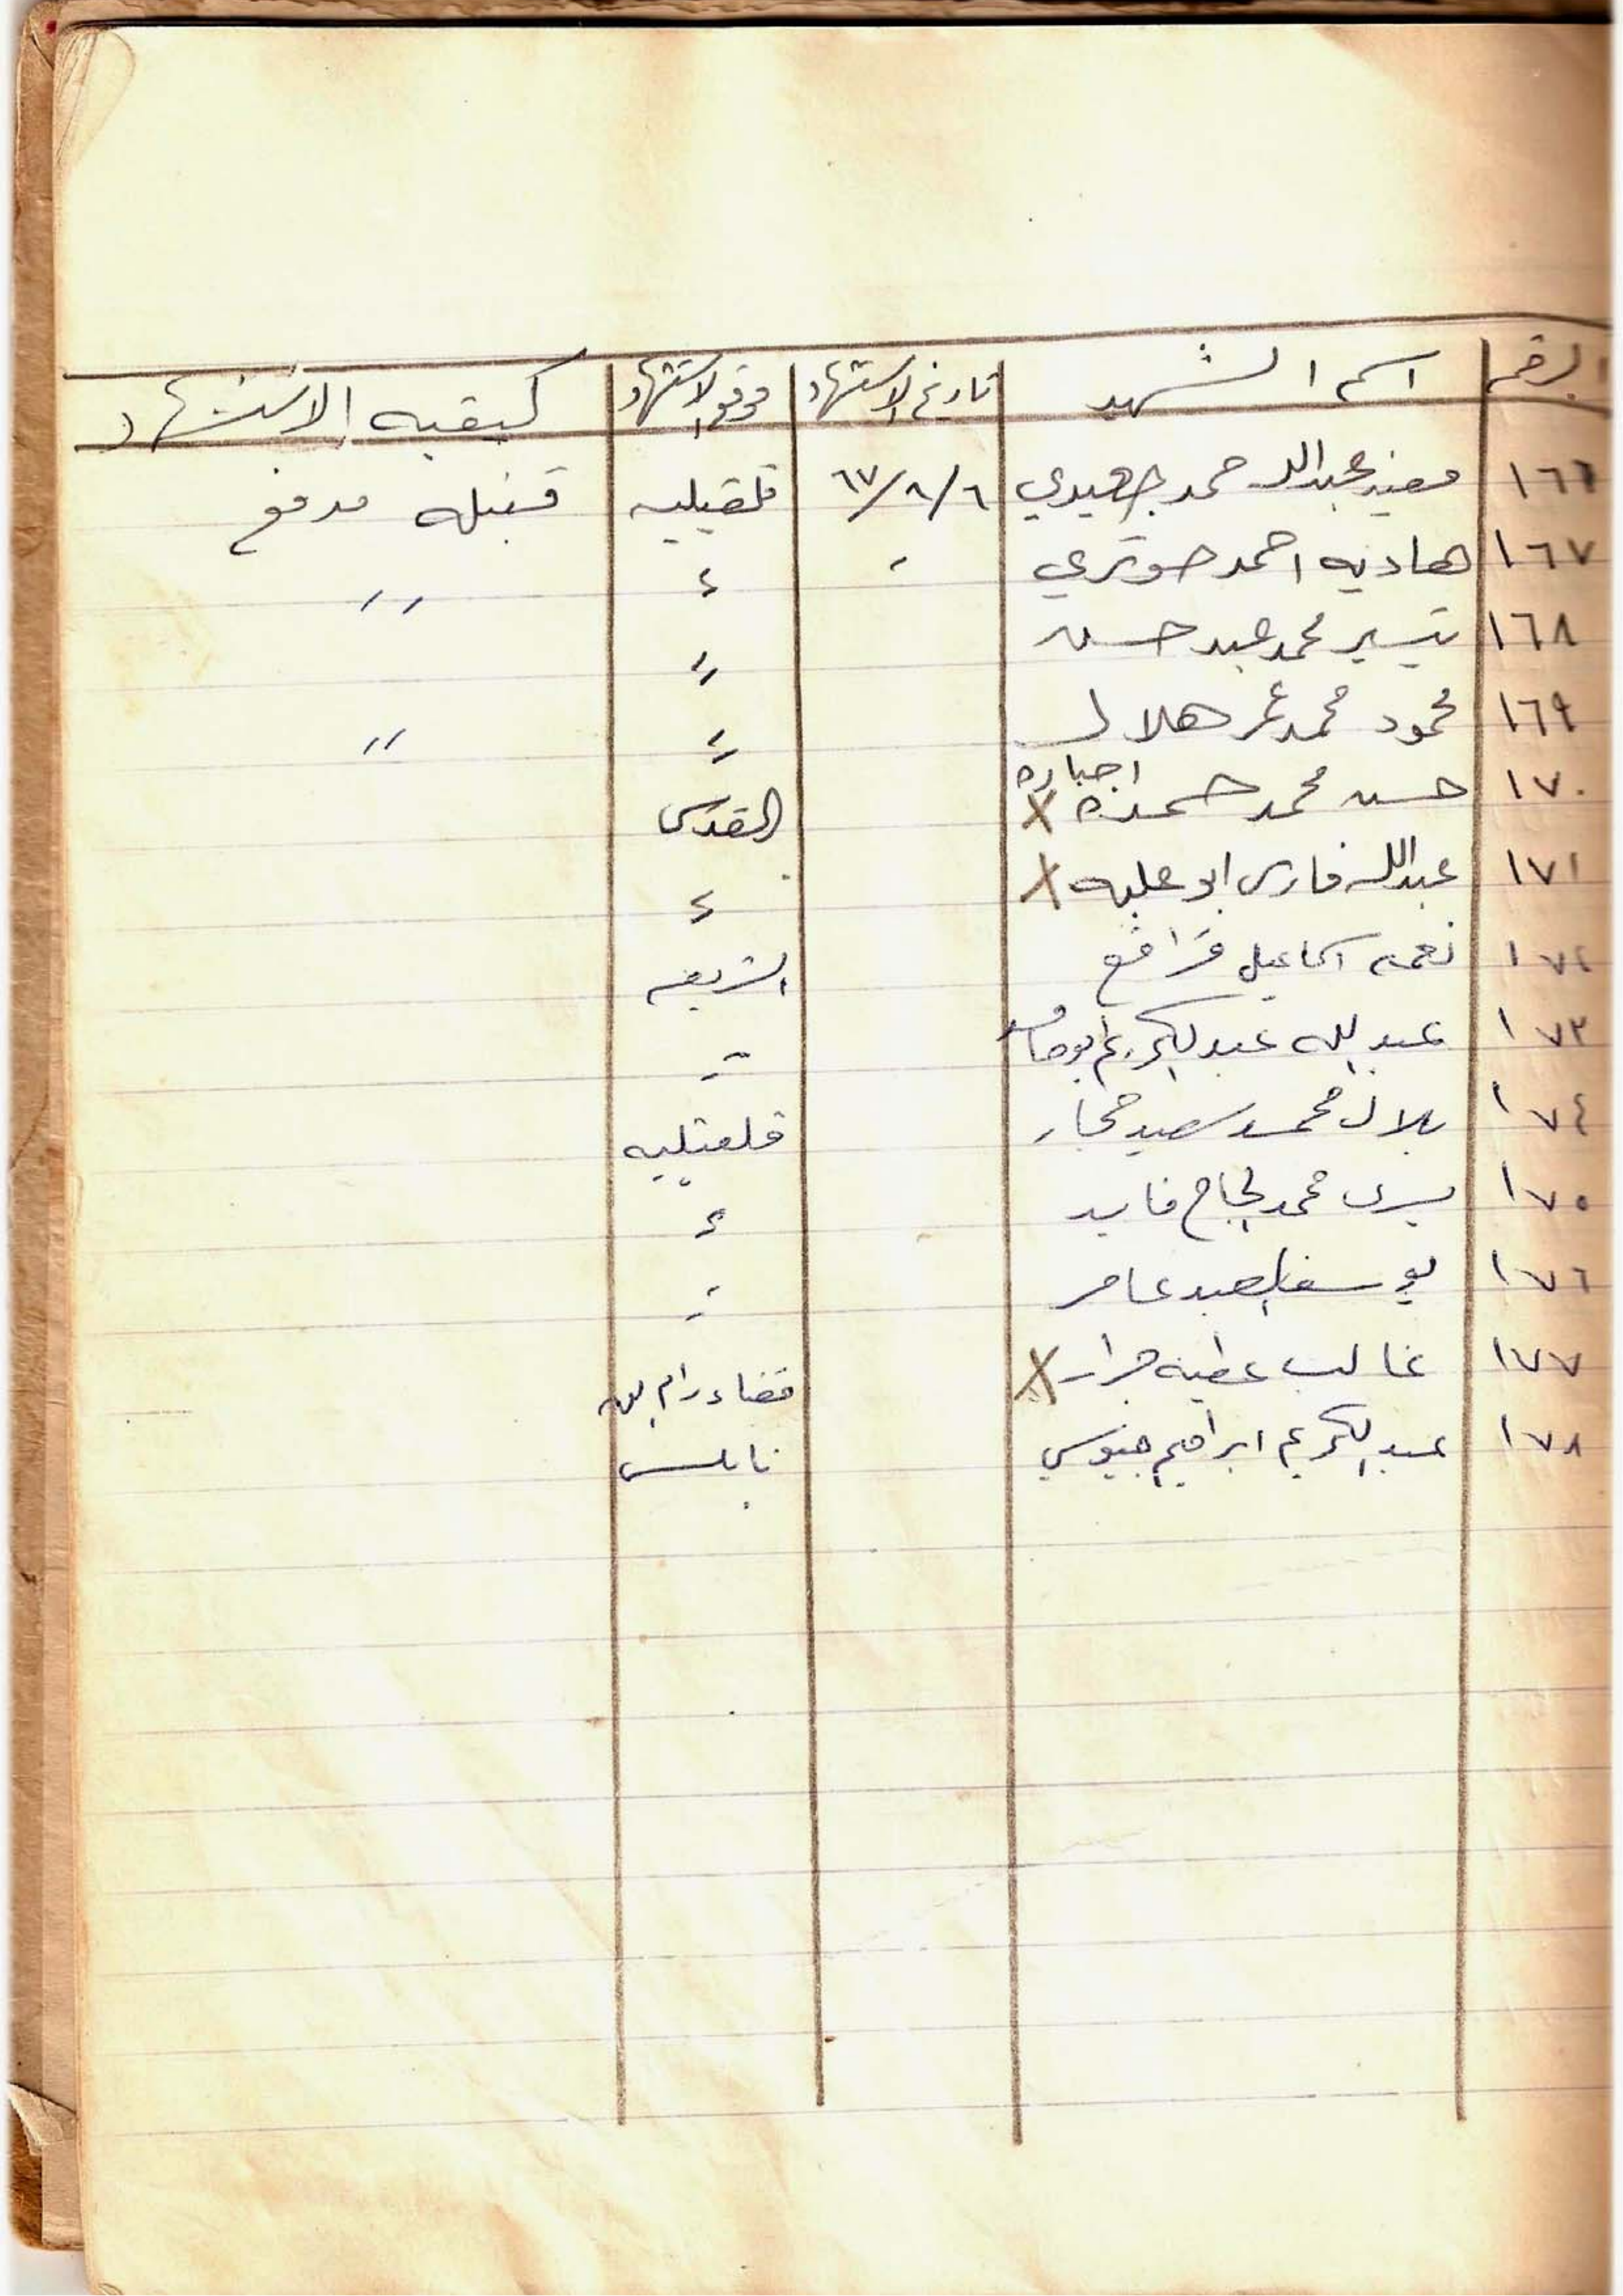 الرقم اسم الشهيد تاريخ الاستشهاد موقع الاستشهاد كيفيه الاستشهاد
١٦٦ مفيد عبدالله حمد جعيدي ٦/٨/٦٧ قلقيليه قنبله مدفع
١٦٧ هاديه احمد " " "
١٦٨ تيسير محمد عبد حسن "
١٦٩ محمود محمد عمر هلال " "
اجباره
١٧٠ حسن محمد حمزه X القدس
١٧١ عبدالله فارس ابو عليه X "
١٧٢ نعمه اسماعيل الشريعه
١٧٣ عبد الله عبد الكريم "
١٧٤ بلال محمد سعيد حجار قلقيليه
١٧٥ يسرى محمد الحاج فايد "
١٧٦ يوسف العبد عامر "
١٧٧ غالب عطيه جرار X قضاء رام الله
١٧٨ عبد الكريم ابراهيم جيوسي نابلس